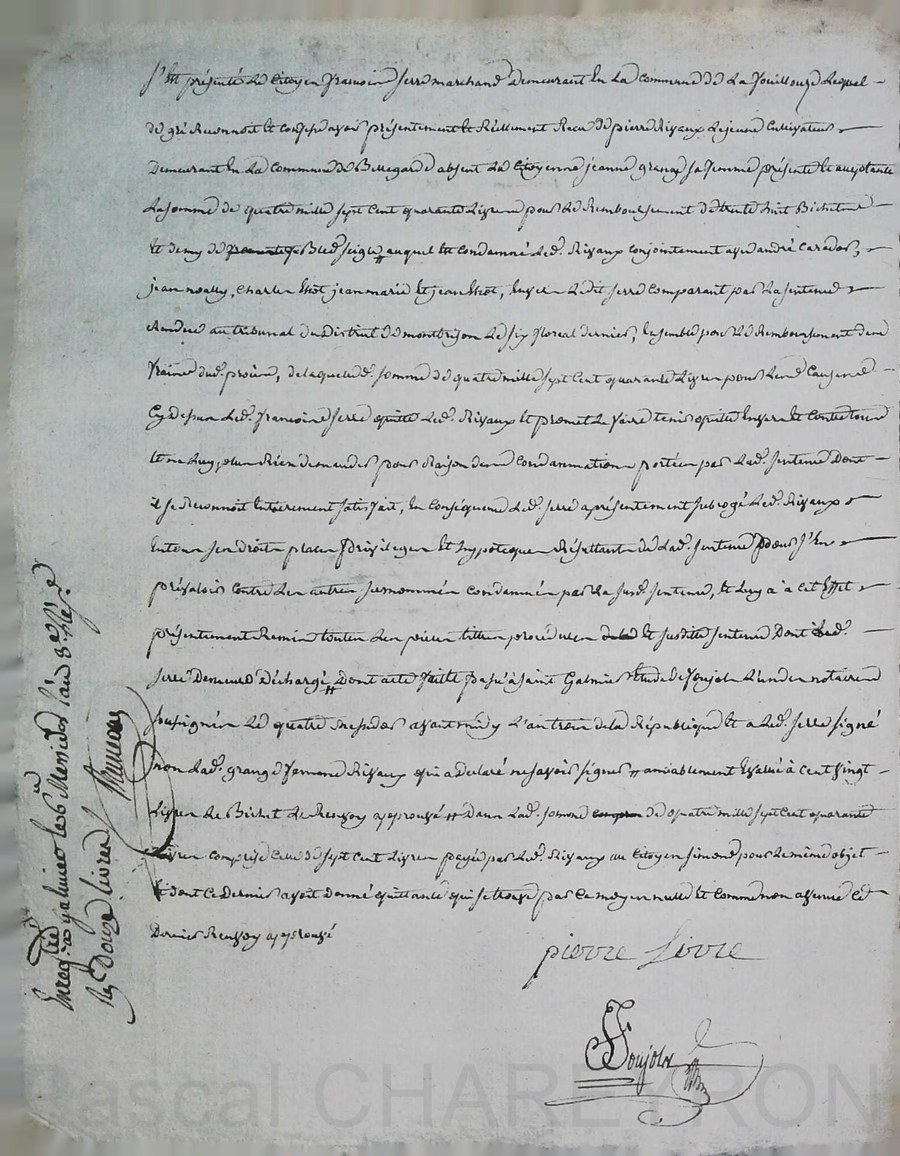 S'est présenté Le Citoyen francois serre marchand Demeurant En La Commune de La fouillouze Lequel
de gré Reconnoit et confesse avoir présentement et Réellement Recu de pierre Rivaux Le jeune Cultivateur
Demeurant En La Commune de Bellegarde absent La Citoyenne jeanne grange sa femme présente et acceptante
La somme de quatre mille sept Cent quarante Livres pour Le Remboursement de trente huit Bichets
et demy de Bled seigle # auquel est Condamné Led. Rivaux Conjointement avec andré
jean Charles jean marie et jean Envers Ledit serre Comparant par La sentence
Rendue au tribunal du District de montbrison Le six floreal dernier, Ensemble pour Le Remboursement des
fraix dud. procès, de laquelle d. somme de quatre mille sept Cent quarante Livres pour Les Causes
Cy Dessus Led. francois serre quitte Led. Rivaux et promet Le faire tenir quitte Envers et Contre tous
et ne Luy plus Rien demander pour Raison des Condamnations portées par Lad. sentence Dont
il se Reconnoit Entierement satisfait, En Conséquence Led. serre a présentement subrogé Led. Rivaux
En tous ses droits places privileges et hypoteques Résultants de Lad. sentence pour s'En
prévaloir Contre Les autres susnommés Condamnés par La susd. sentence, et Luy a à cet Effet
présentement Remis toutes Les pieces titres procédures et susdite sentence Dont Led.
serre Demeure Déchargé, Dont acte fait et passé à saint Galmier Etude de foujols L'un des notaires
soussignés Le quatre messidor avant midy L'an trois de la République et a Led. serre signé
non Lad. grange femme Rivaux qui a declaré ne savoir signer # amiablement Evalué à Cent vingt
Livres Le Bichet Le Renvoy approuvé # Dans Lad. somme de quatre mille sept Cent quarante
Livres comprise Celle de sept Cent Livres payée par Led. Rivaux au Citoyen simond pour Le même objet
et dont Ce Dernier avoit Donné quittance qui se trouve par Ce moyen nulle et Comme non avenue Ce
Dernier Renvoy approuvé
pierre Sivre
foujols
Enreg. à galmier le 6 Messidor l'an 3
Reç Douze livres
Pascal CHAREYRON